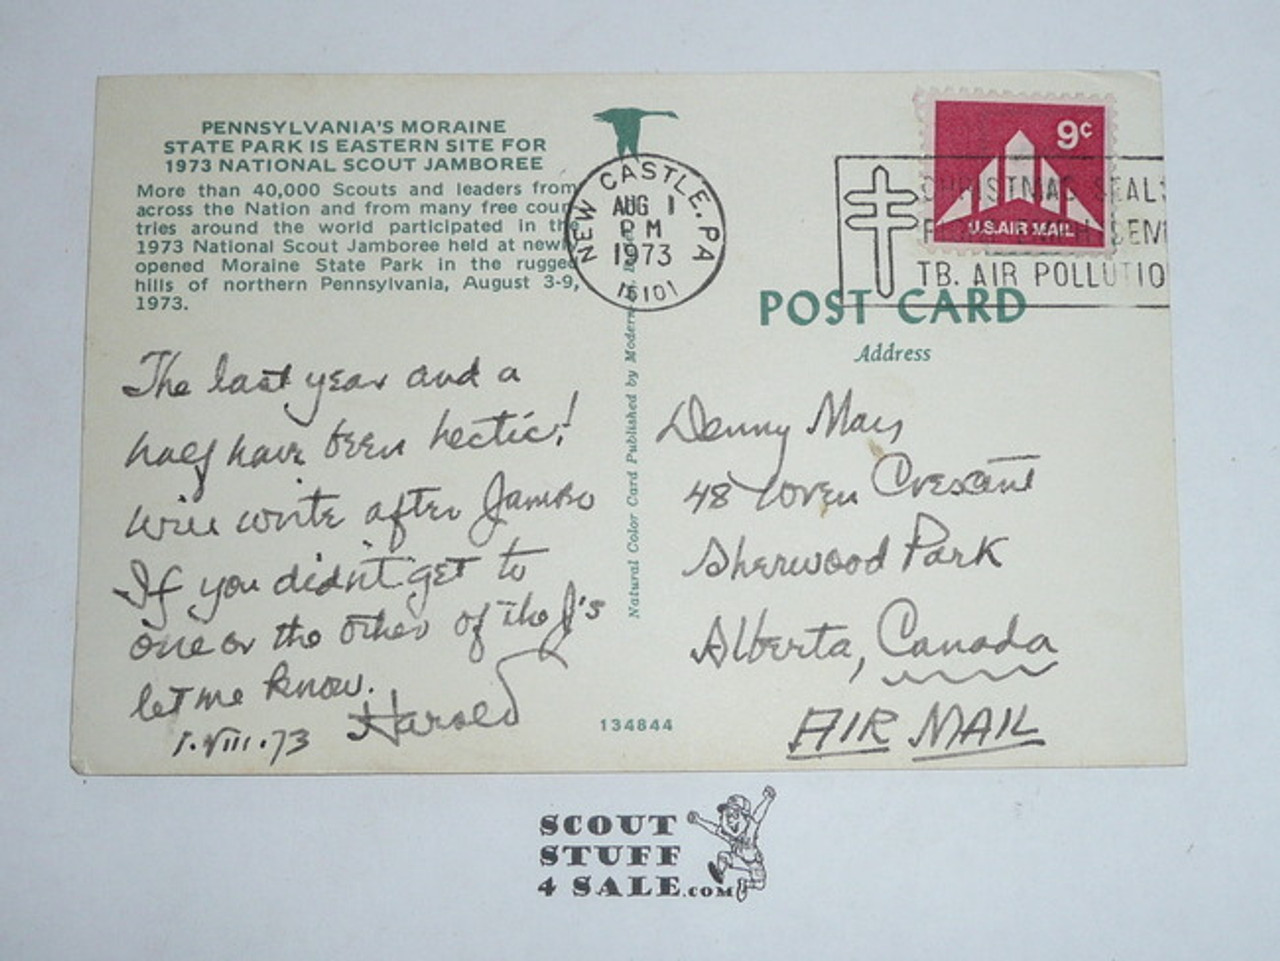 PENNSYLVANIA'S MORAINE
STATE PARK IS EASTERN SITE FOR
1973 NATIONAL SCOUT JAMBOREE
More than 40,000 Scouts and leaders from
across the Nation and from many free coun
tries around the world participated in the
1973 National Scout Jamboree held at newl
opened Moraine State Park in the rugged
hills of northern Pennsylvania, August 3-9,
1973.
The last year and a
half have been hectic!
will write after Jambo
If you didn't get to
one or the other of the J's
let me know.
Harold
1.VIII.73
NEW CASTLE, PA
AUG 1
PM
1973
16101
9¢
U.S. AIR MAIL
CHRISTMAS SEALS
TB. AIR POLLUTIO
POST CARD
Address
Denny May
48 Crescent
Sherwood Park
Alberta, Canada
AIR MAIL
Natural Color Card Published by Modern
134844
SCOUT
STUFF
4 SALE.COM